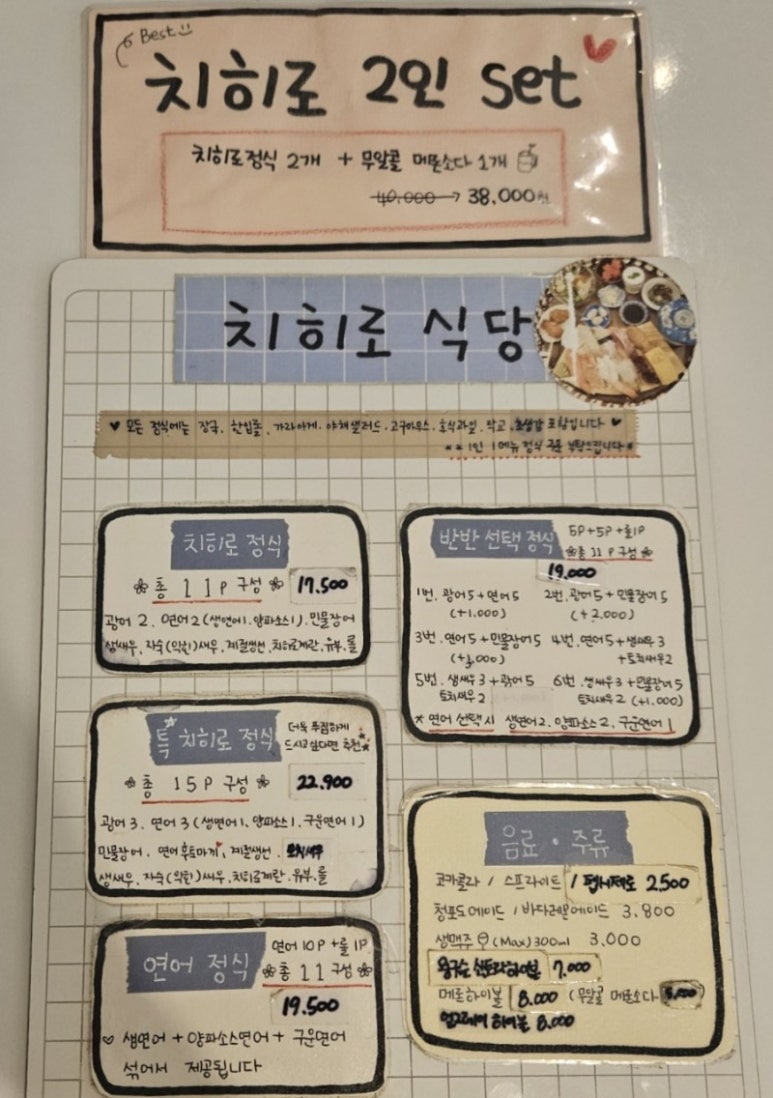 Best
치히로 2인 set
치히로정식 2개 + 무알콜 메론소다 1개
40,000 → 38,000원
치히로 식당
♥ 모든 정식에는 장국, 한입쫄, 가라아게, 야채샐러드, 고구마무스, 후식과일, 락교, 초생강 포함입니다 ♥
** 1인 1메뉴 정식 주문 부탁드립니다 *
치히로 정식
총 11P 구성 17,500
광어 2, 연어 2 (생연어1, 양파소스1), 민물장어
생새우, 자숙(익힌)새우, 계절생선, 치히로계란, 유부, 롤
특 치히로 정식
더욱 푸짐하게
드시고싶다면 추천
총 15P 구성 22,900
광어 3, 연어 3 (생연어1, 양파소스1, 구운연어1)
민물장어, 연어후토마끼, 계절생선,
생새우, 자숙(익힌)새우, 치히로계란, 유부, 롤
연어 정식
연어 10P + 롤 1P
총 11 구성
19,500
생연어 + 양파소스연어 + 구운연어
섞어서 제공됩니다
반반 선택 정식
5P+5P+롤1P
총 11P 구성
19,000
1번. 광어5 + 연어5 (+1,000)
2번. 광어5 + 민물장어5 (+2,000)
3번. 연어5 + 민물장어5
4번. 연어5 + 생새우3 + 토치새우2
5번. 생새우3 + 광어5 토치새우2
6번. 생새우3 + 민물장어5 토치새우2 (+1,000)
* 연어 선택시 생연어2, 양파소스2, 구운연어1
음료 · 주류
코카콜라 / 스프라이트 / 펩시제로 2,500
청포도에이드 / 바다레몬에이드 3,800
생맥주 (Max) 300ml 3,000
산토리하이볼 7,000
메론하이볼 8,000 (무알콜 메론소다
얼그레이 하이볼 8,000